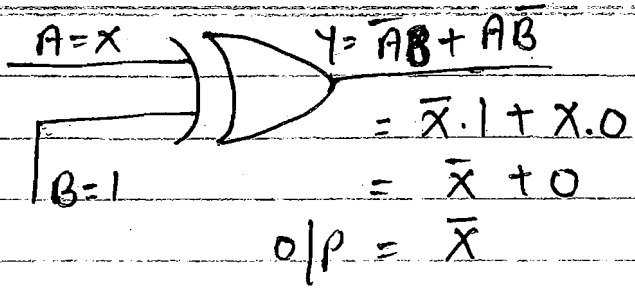 A=X Y= A̅B + AB̅
= X̅.1 + X.0
B=1 = X̅ + 0
O/P = X̅